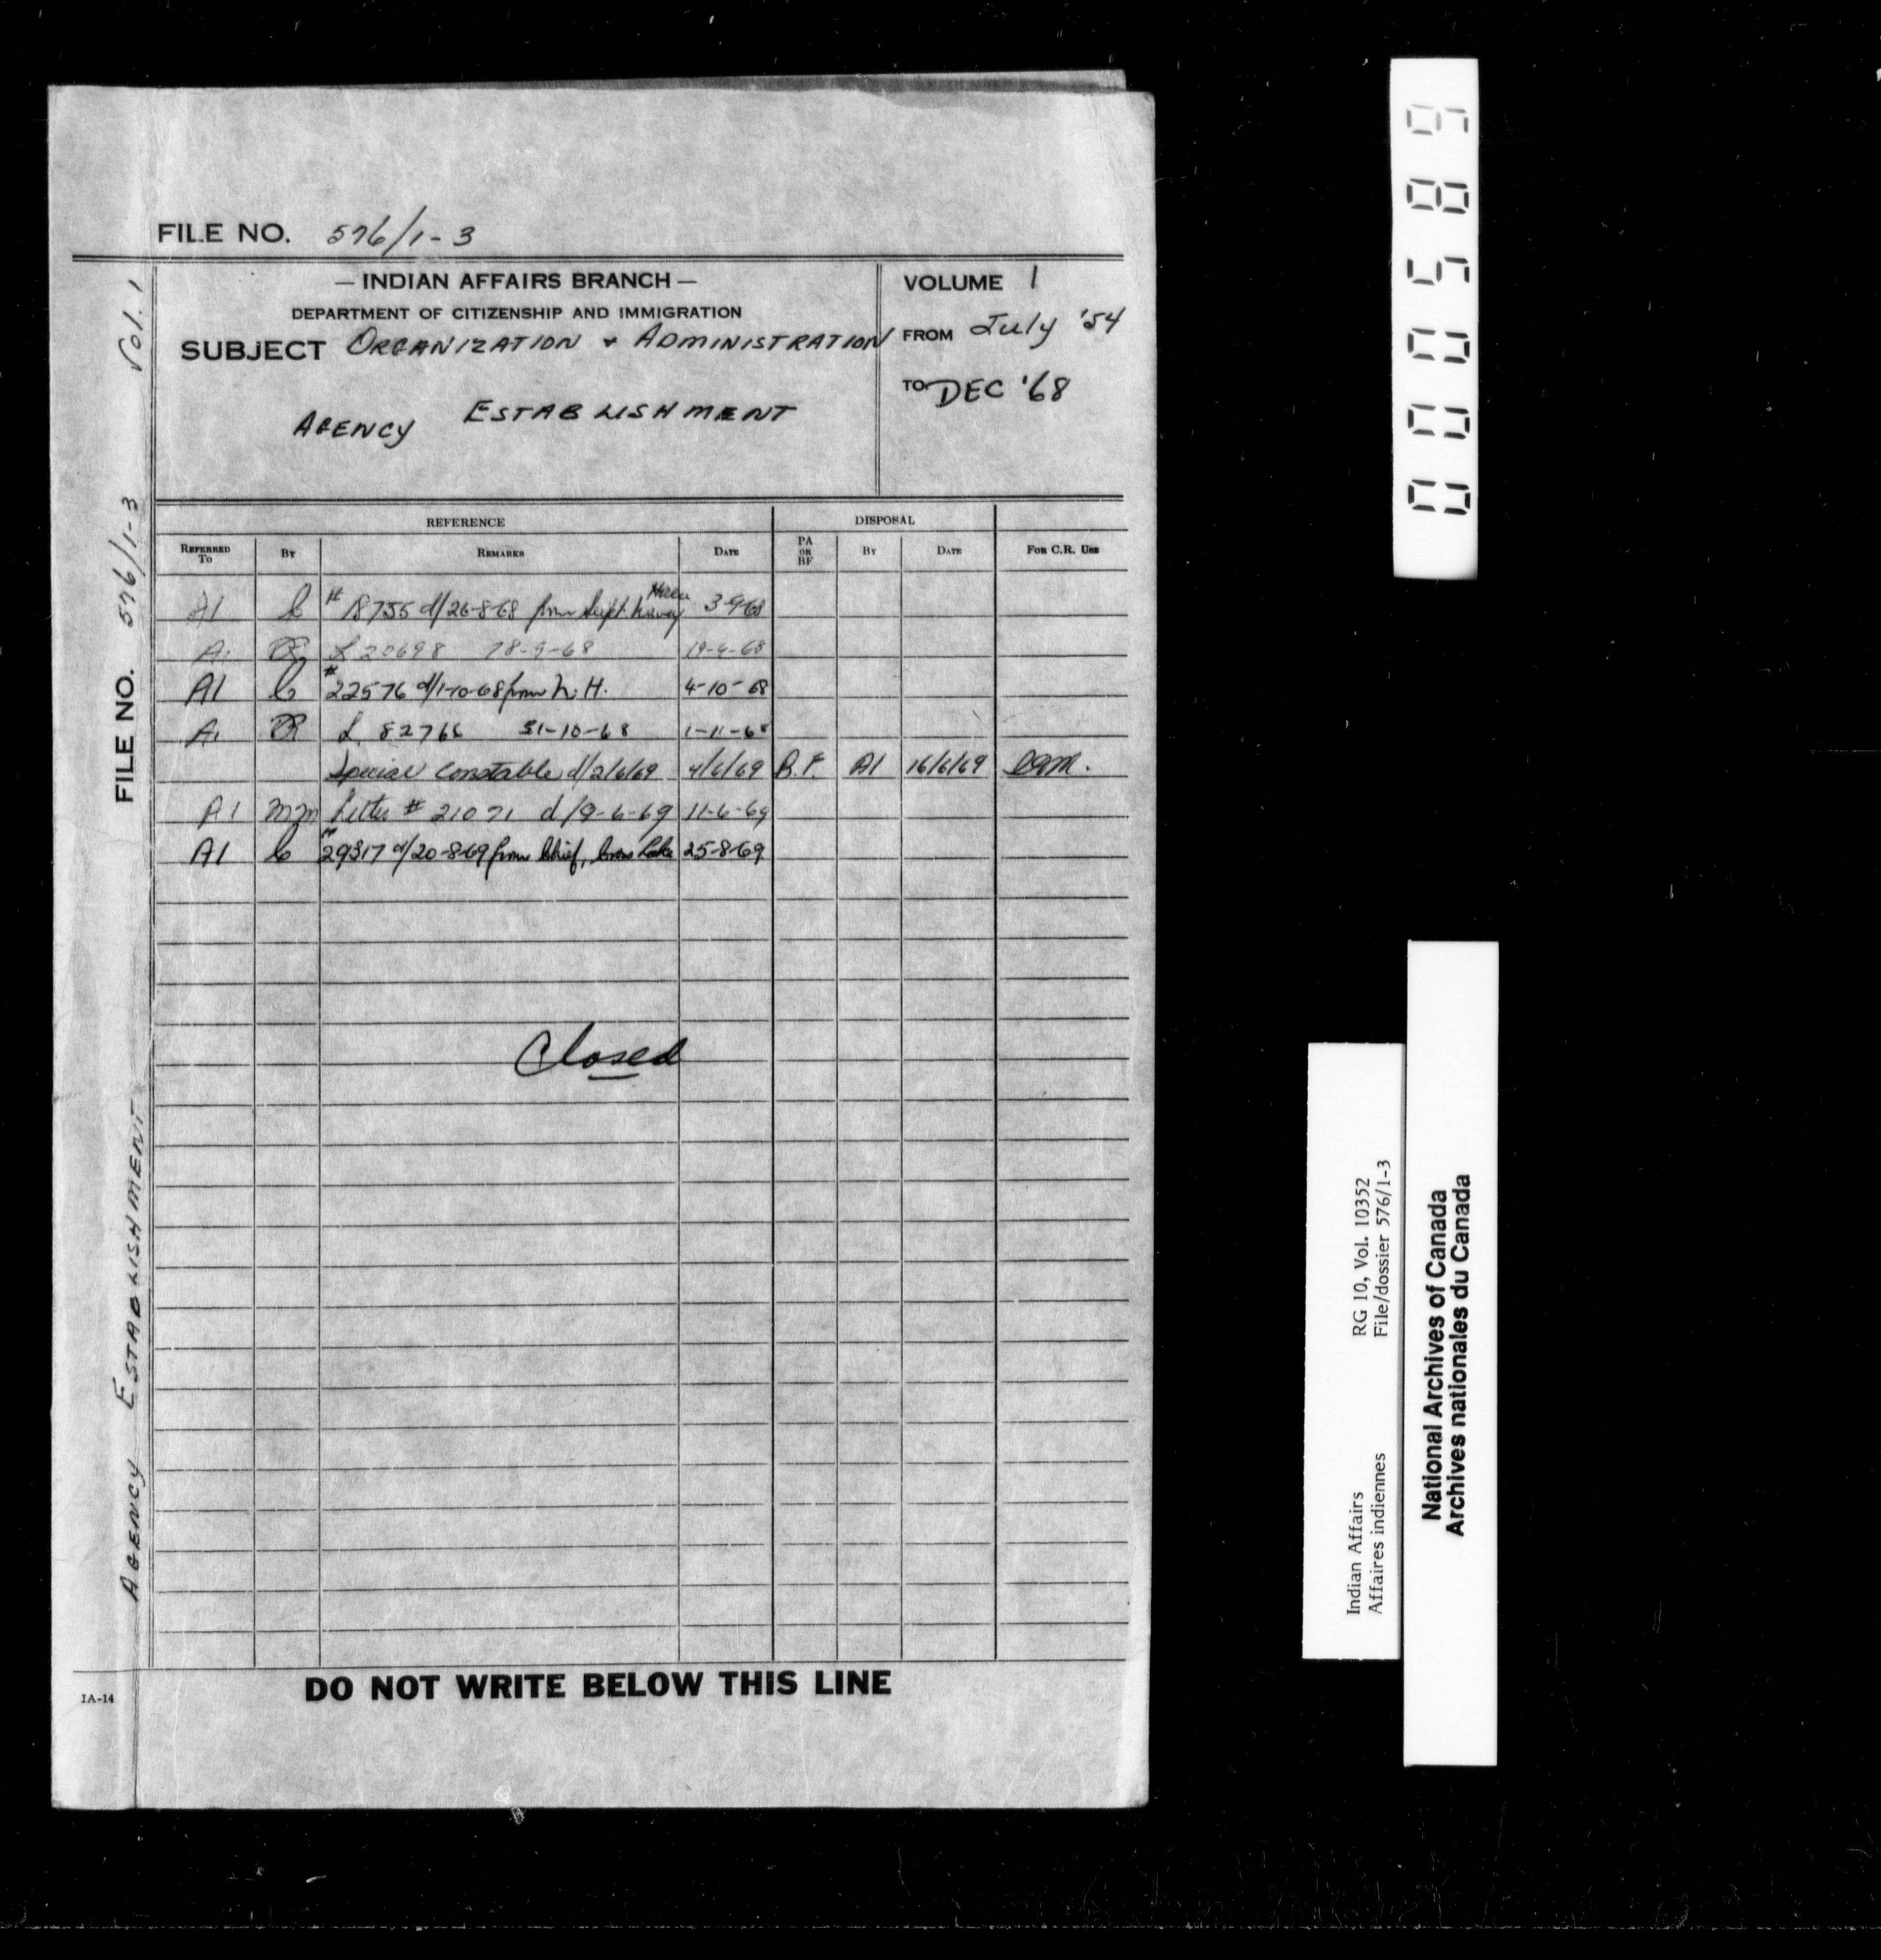 FILE NO. 576/1-3
— INDIAN AFFAIRS BRANCH —
DEPARTMENT OF CITIZENSHIP AND IMMIGRATION
SUBJECT ORGANIZATION + ADMINISTRATION
AGENCY ESTABLISHMENT
VOLUME 1
FROM July '54
TO DEC '68
REFERENCE DISPOSAL
REFERRED TO BY REMARKS DATE PA OR BF BY DATE FOR C.R. USE
A1 # 18755 d/26-8-68 from Supt. 3-9-68
A1 L 20698 18-9-68 19-9-68
A1 # 22576 d/1-10-68 from N.H. 4-10-68
A1 L 82766 31-10-68 1-11-68
Special Constable d/2/6/69 4/6/69 B.F. A1 16/6/69
A1 mm Letter # 21071 d/9-6-69 11-6-69
A1 29317 d/20-8-69 from Chief, Cross Lake 25-8-69
Closed
DO NOT WRITE BELOW THIS LINE
IA-14
FILE NO. 576/1-3 Vol. 1
AGENCY ESTABLISHMENT
000589
Indian Affairs RG 10, Vol. 10352
Affaires indiennes File/dossier 576/1-3
National Archives of Canada
Archives nationales du Canada